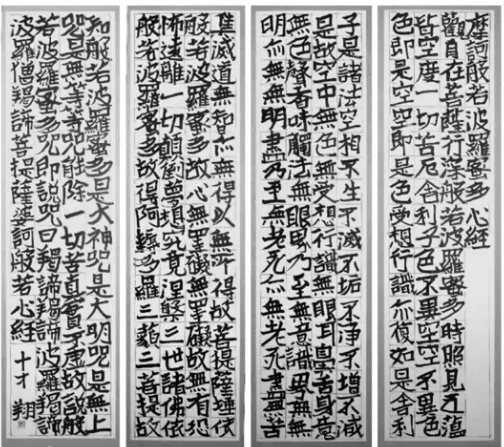 摩訶般若波羅蜜多心經
觀自在菩薩行深般若波羅蜜多時照見五蘊
皆空度一切苦厄舍利子色不異空空不異
色即是空空即是色受想行識亦復如是舍利
子是諸法空相不生不滅不垢不淨不增不減
是故空中無色無受想行識無眼耳鼻舌身意
無色聲香味觸法無眼界乃至無意識界無無
明亦無無明盡乃至無老死亦無老死盡無苦
集滅道無智亦無得以無所得故菩提薩埵依
般若波羅蜜多故心無罣礙無罣礙故無有恐
怖遠離一切顛倒夢想究竟涅槃三世諸佛依
般若波羅蜜多故得阿耨多羅三藐三菩提故
知般若波羅蜜多是大神呪是大明呪是無上
呪是無等等呪能除一切苦真實不虛故說般
若波羅蜜多呪即說呪曰羯諦羯諦波羅羯諦
波羅僧羯諦菩提薩婆訶般若心經 十才 翔